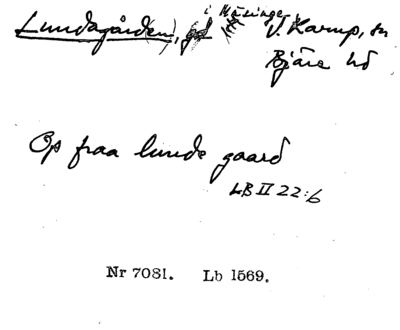 Lundagård(en), i Häsinge, V. Karup, sn
Bjäre hd
Op fraa lunde gaard
LB II 22:6
Nr 7081. Lb 1569.